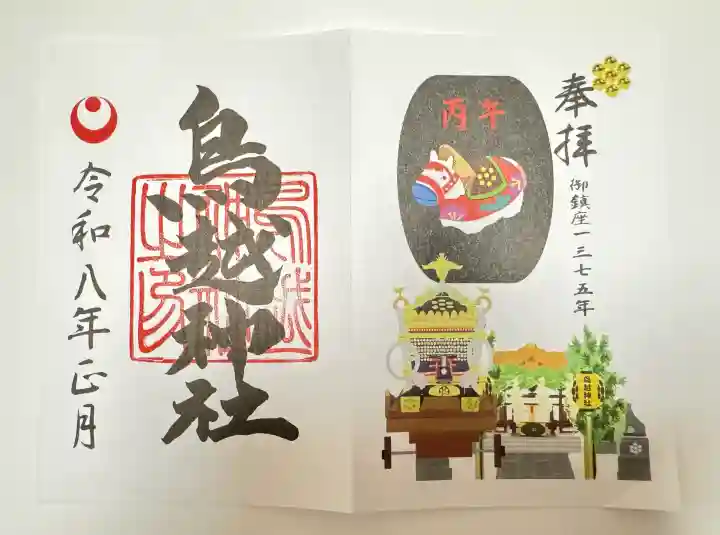 奉拝
御鎮座一三七五年
丙午
鳥越神社
鳥越神社
令和八年正月